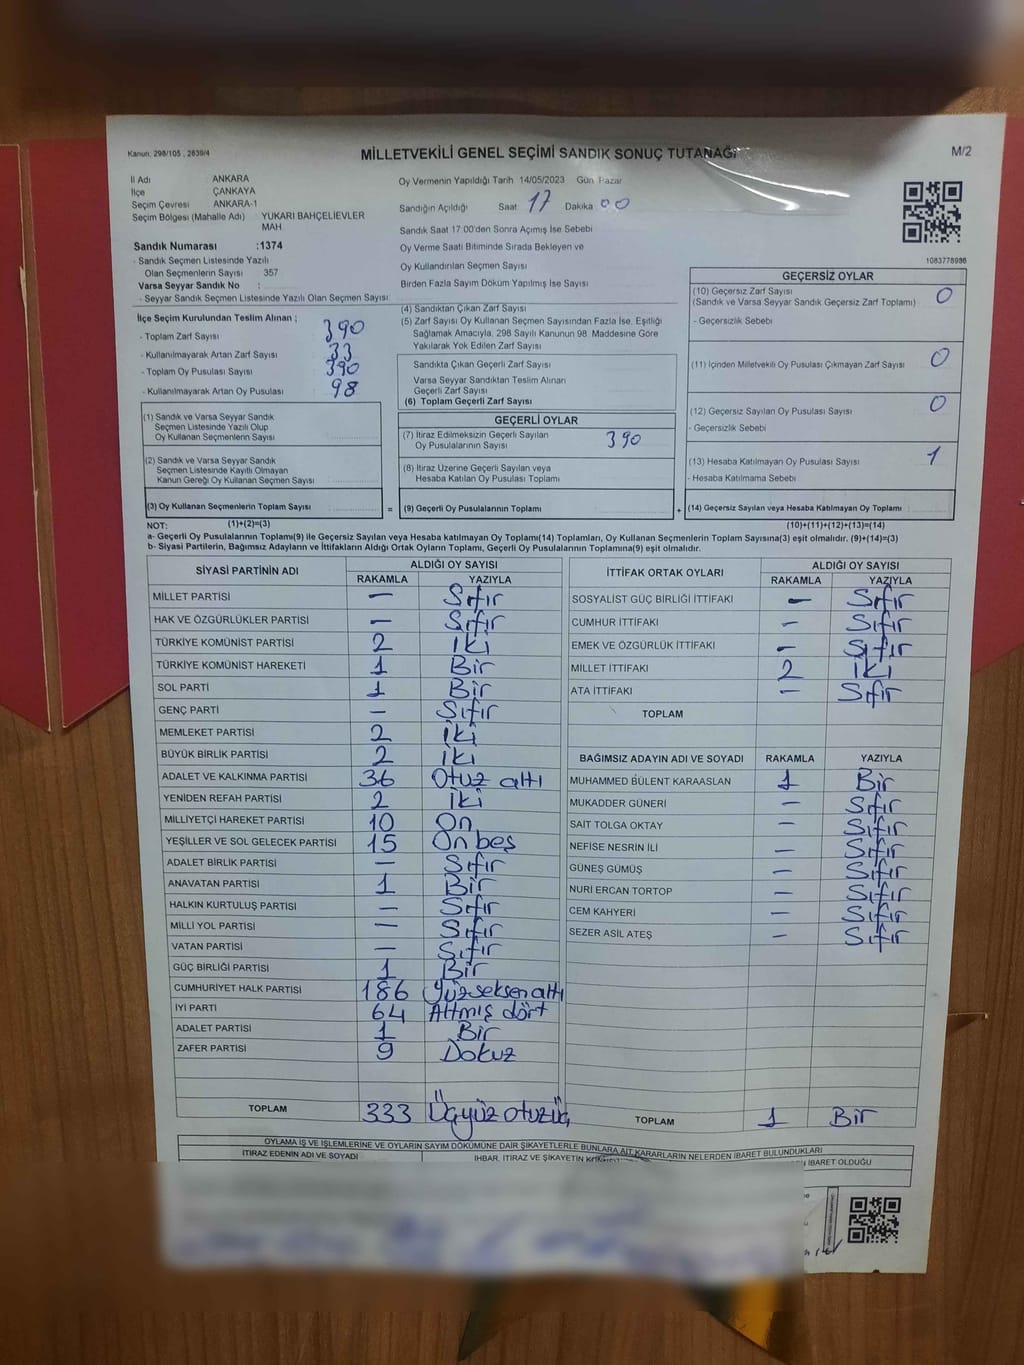 Kanun: 298/105 , 2839/4
MİLLETVEKİLİ GENEL SEÇİMİ SANDIK SONUÇ TUTANAĞI
M/2
İl Adı ANKARA
İlçe ÇANKAYA
Seçim Çevresi ANKARA-1
Seçim Bölgesi (Mahalle Adı) YUKARI BAHÇELİEVLER MAH
Sandık Numarası :1374
- Sandık Seçmen Listesinde Yazılı
Olan Seçmenlerin Sayısı 357
Varsa Seyyar Sandık No :
- Seyyar Sandık Seçmen Listesinde Yazılı Olan Seçmen Sayısı
Oy Vermenin Yapıldığı Tarih 14/05/2023 Gün Pazar
Sandığın Açıldığı Saat 17 Dakika 00
Sandık Saat 17:00'den Sonra Açımış İse Sebebi
Oy Verme Saati Bitiminde Sırada Bekleyen ve
Oy Kullandırılan Seçmen Sayısı
Birden Fazla Sayım Döküm Yapılmış İse Sayısı
1083778986
İlçe Seçim Kurulundan Teslim Alınan ;
- Toplam Zarf Sayısı : 390
- Kullanılmayarak Artan Zarf Sayısı : 33
- Toplam Oy Pusulası Sayısı : 390
- Kullanılmayarak Artan Oy Pusulası : 98
(1) Sandık ve Varsa Seyyar Sandık
Seçmen Listesinde Yazılı Olup
Oy Kullanan Seçmenlerin Sayısı
(2) Sandık ve Varsa Seyyar Sandık
Seçmen Listesinde Kayıtlı Olmayan
Kanun Gereği Oy Kullanan Seçmen Sayısı
(3) Oy Kullanan Seçmenlerin Toplam Sayısı =
(4) Sandıktan Çıkan Zarf Sayısı
(5) Zarf Sayısı Oy Kullanan Seçmen Sayısından Fazla İse, Eşitliği
Sağlamak Amacıyla, 298 Sayılı Kanunun 98. Maddesine Göre
Yakılarak Yok Edilen Zarf Sayısı
Sandıkta Çıkan Geçerli Zarf Sayısı
Varsa Seyyar Sandıktan Teslim Alınan
Geçerli Zarf Sayısı
(6) Toplam Geçerli Zarf Sayısı
GEÇERLİ OYLAR
(7) İtiraz Edilmeksizin Geçerli Sayılan
Oy Pusulalarının Sayısı 390
(8) İtiraz Üzerine Geçerli Sayılan veya
Hesaba Katılan Oy Pusulası Toplamı
(9) Geçerli Oy Pusulalarının Toplamı +
GEÇERSİZ OYLAR
(10) Geçersiz Zarf Sayısı 0
(Sandık ve Varsa Seyyar Sandık Geçersiz Zarf Toplamı)
- Geçersizlik Sebebi
(11) İçinden Milletvekili Oy Pusulası Çıkmayan Zarf Sayısı 0
(12) Geçersiz Sayılan Oy Pusulası Sayısı 0
- Geçersizlik Sebebi
(13) Hesaba Katılmayan Oy Pusulası Sayısı 1
- Hesaba Katılmama Sebebi
(14) Geçersiz Sayılan veya Hesaba Katılmayan Oy Toplamı
NOT: (1)+(2)=(3) (10)+(11)+(12)+(13)=(14)
a- Geçerli Oy Pusulalarının Toplamı(9) ile Geçersiz Sayılan veya Hesaba katılmayan Oy Toplamı(14) Toplamları, Oy Kullanan Seçmenlerin Toplam Sayısına(3) eşit olmalıdır. (9)+(14)=(3)
b- Siyasi Partilerin, Bağımsız Adayların ve İttifakların Aldığı Ortak Oyların Toplamı, Geçerli Oy Pusulalarının Toplamına(9) eşit olmalıdır.
SİYASİ PARTİNİN ADI ALDIĞI OY SAYISI
RAKAMLA YAZIYLA
MİLLET PARTİSİ — Sıfır
HAK VE ÖZGÜRLÜKLER PARTİSİ — Sıfır
TÜRKİYE KOMÜNİST PARTİSİ 2 İki
TÜRKİYE KOMÜNİST HAREKETİ 1 Bir
SOL PARTİ 1 Bir
GENÇ PARTİ — Sıfır
MEMLEKET PARTİSİ 2 İki
BÜYÜK BİRLİK PARTİSİ 2 İki
ADALET VE KALKINMA PARTİSİ 36 Otuz altı
YENİDEN REFAH PARTİSİ 2 İki
MİLLİYETÇİ HAREKET PARTİSİ 10 On
YEŞİLLER VE SOL GELECEK PARTİSİ 15 On beş
ADALET BİRLİK PARTİSİ — Sıfır
ANAVATAN PARTİSİ 1 Bir
HALKIN KURTULUŞ PARTİSİ — Sıfır
MİLLİ YOL PARTİSİ — Sıfır
VATAN PARTİSİ — Sıfır
GÜÇ BİRLİĞİ PARTİSİ 1 Bir
CUMHURİYET HALK PARTİSİ 186 Yüzseksenaltı
İYİ PARTİ 64 Altmış dört
ADALET PARTİSİ 1 Bir
ZAFER PARTİSİ 9 Dokuz
TOPLAM 333 Üçyüzotuzüç
İTTİFAK ORTAK OYLARI ALDIĞI OY SAYISI
RAKAMLA YAZIYLA
SOSYALİST GÜÇ BİRLİĞİ İTTİFAKI — Sıfır
CUMHUR İTTİFAKI — Sıfır
EMEK VE ÖZGÜRLÜK İTTİFAKI — Sıfır
MİLLET İTTİFAKI 2 İki
ATA İTTİFAKI — Sıfır
TOPLAM
BAĞIMSIZ ADAYIN ADI VE SOYADI RAKAMLA YAZIYLA
MUHAMMED BÜLENT KARAASLAN 1 Bir
MUKADDER GÜNERİ — Sıfır
SAİT TOLGA OKTAY — Sıfır
NEFİSE NESRİN İLİ — Sıfır
GÜNEŞ GÜMÜŞ — Sıfır
NURİ ERCAN TORTOP — Sıfır
CEM KAHYERİ — Sıfır
SEZER ASİL ATEŞ — Sıfır
TOPLAM 1 Bir
OYLAMA İŞ VE İŞLEMLERİNE VE OYLARIN SAYIM DÖKÜMÜNE DAİR ŞİKAYETLERLE BUNLARA AİT KARARLARIN NELERDEN İBARET BULUNDUKLARI
İTİRAZ EDENİN ADI VE SOYADI İHBAR, İTİRAZ VE ŞİKAYETİN İBARET OLDUĞU